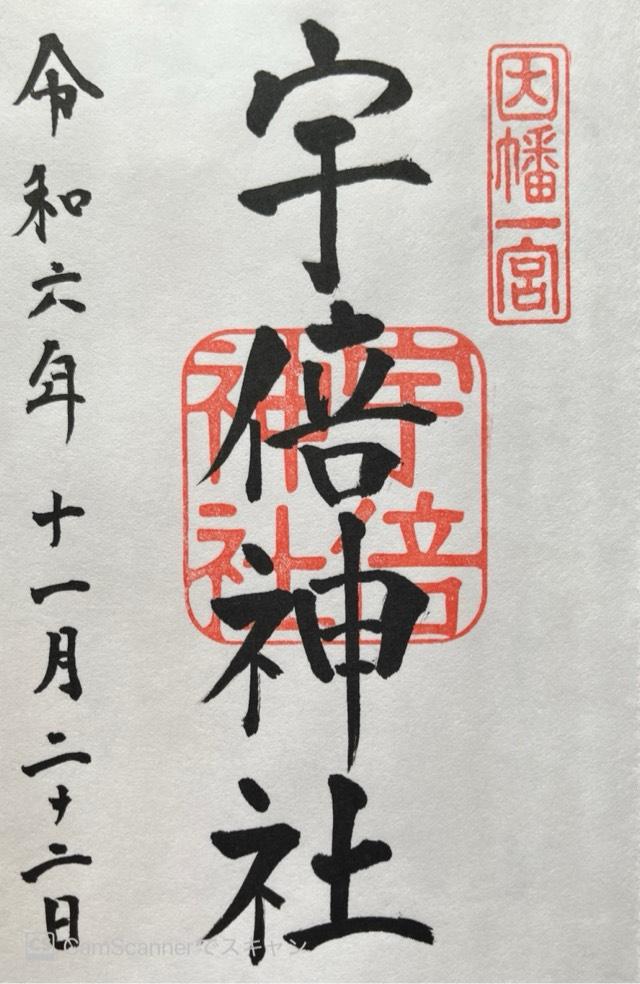 因幡一宮
宇倍神社
宇倍
神社
令和六年十一月二十二日
CS CamScannerでスキャン